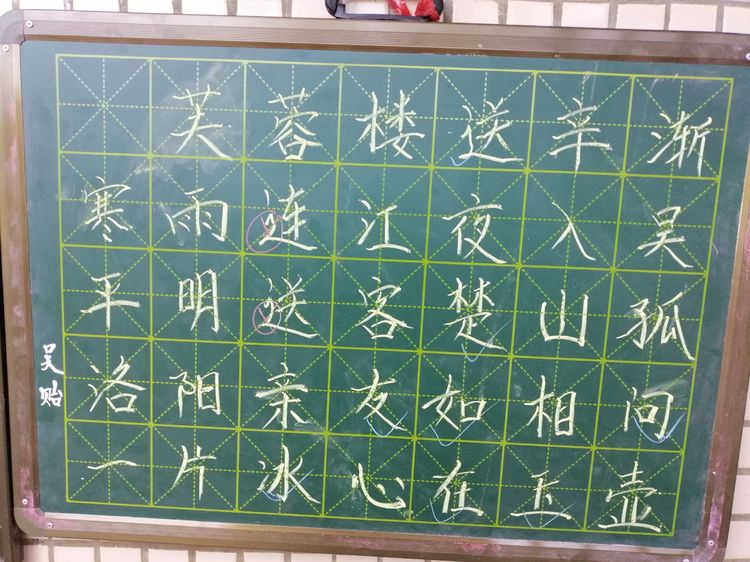 芙蓉楼送辛渐
寒雨连江夜入吴
平明送客楚山孤
洛阳亲友如相问
一片冰心在玉壶
吴贻